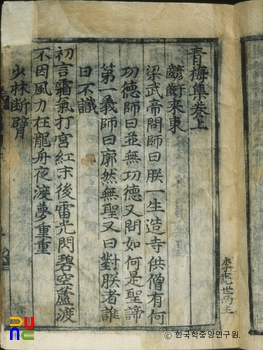 青梅集卷上
来東
梁武帝問師曰朕一生造寺供僧有何
功德師曰並無功德又問如何是聖諦
第一義師曰廓然無聖又曰對朕者誰
曰不識
初言霜氣打宮紅末後雷光閃碧空蘆渡
不因風力在龍舟夜渡夢重重
少林断臂
© 한국학중앙연구원